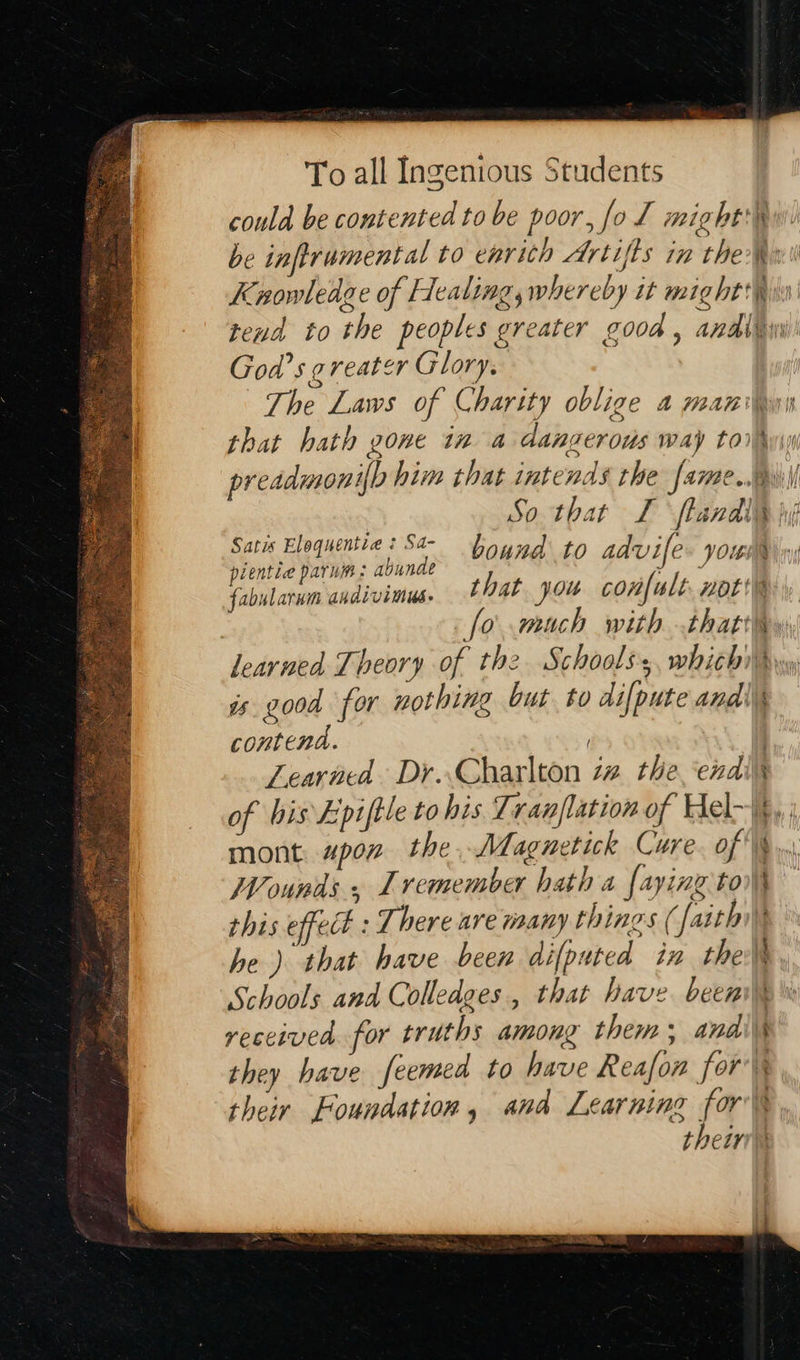 To all Ingenious Students
could be contented to be poor, ſo I might
be inſtrumental to enrich Artiſts in the
Knowledge of Healing, whereby it might
tend to the peoples greater good, and
God's greater Glory.
The Laws of Charity oblige a man
that hath gone in a dangerous way to
preadmoniſh him that intends the ſame.
So that I ſtand
Satis Eloquentiæ : Sa-
pientiæ parum : abunde
fabularum audivimus.
bound to adviſe you
that you conſult not
ſo much with that
learned Theory of the Schools, which
is good for nothing but to diſpute and
contend.
Learned Dr. Charlton in the end
of his Epiſtle to his Tranſlation of Hel-
mont upon the Magnetick Cure of
Wounds ; I remember hath a ſaying to
this effect : There are many things (ſaith
he ) that have been diſputed in the
Schools and Colledges, that have been
received for truths among them ; and
they have ſeemed to have Reaſon for
their Foundation, and Learning for
their